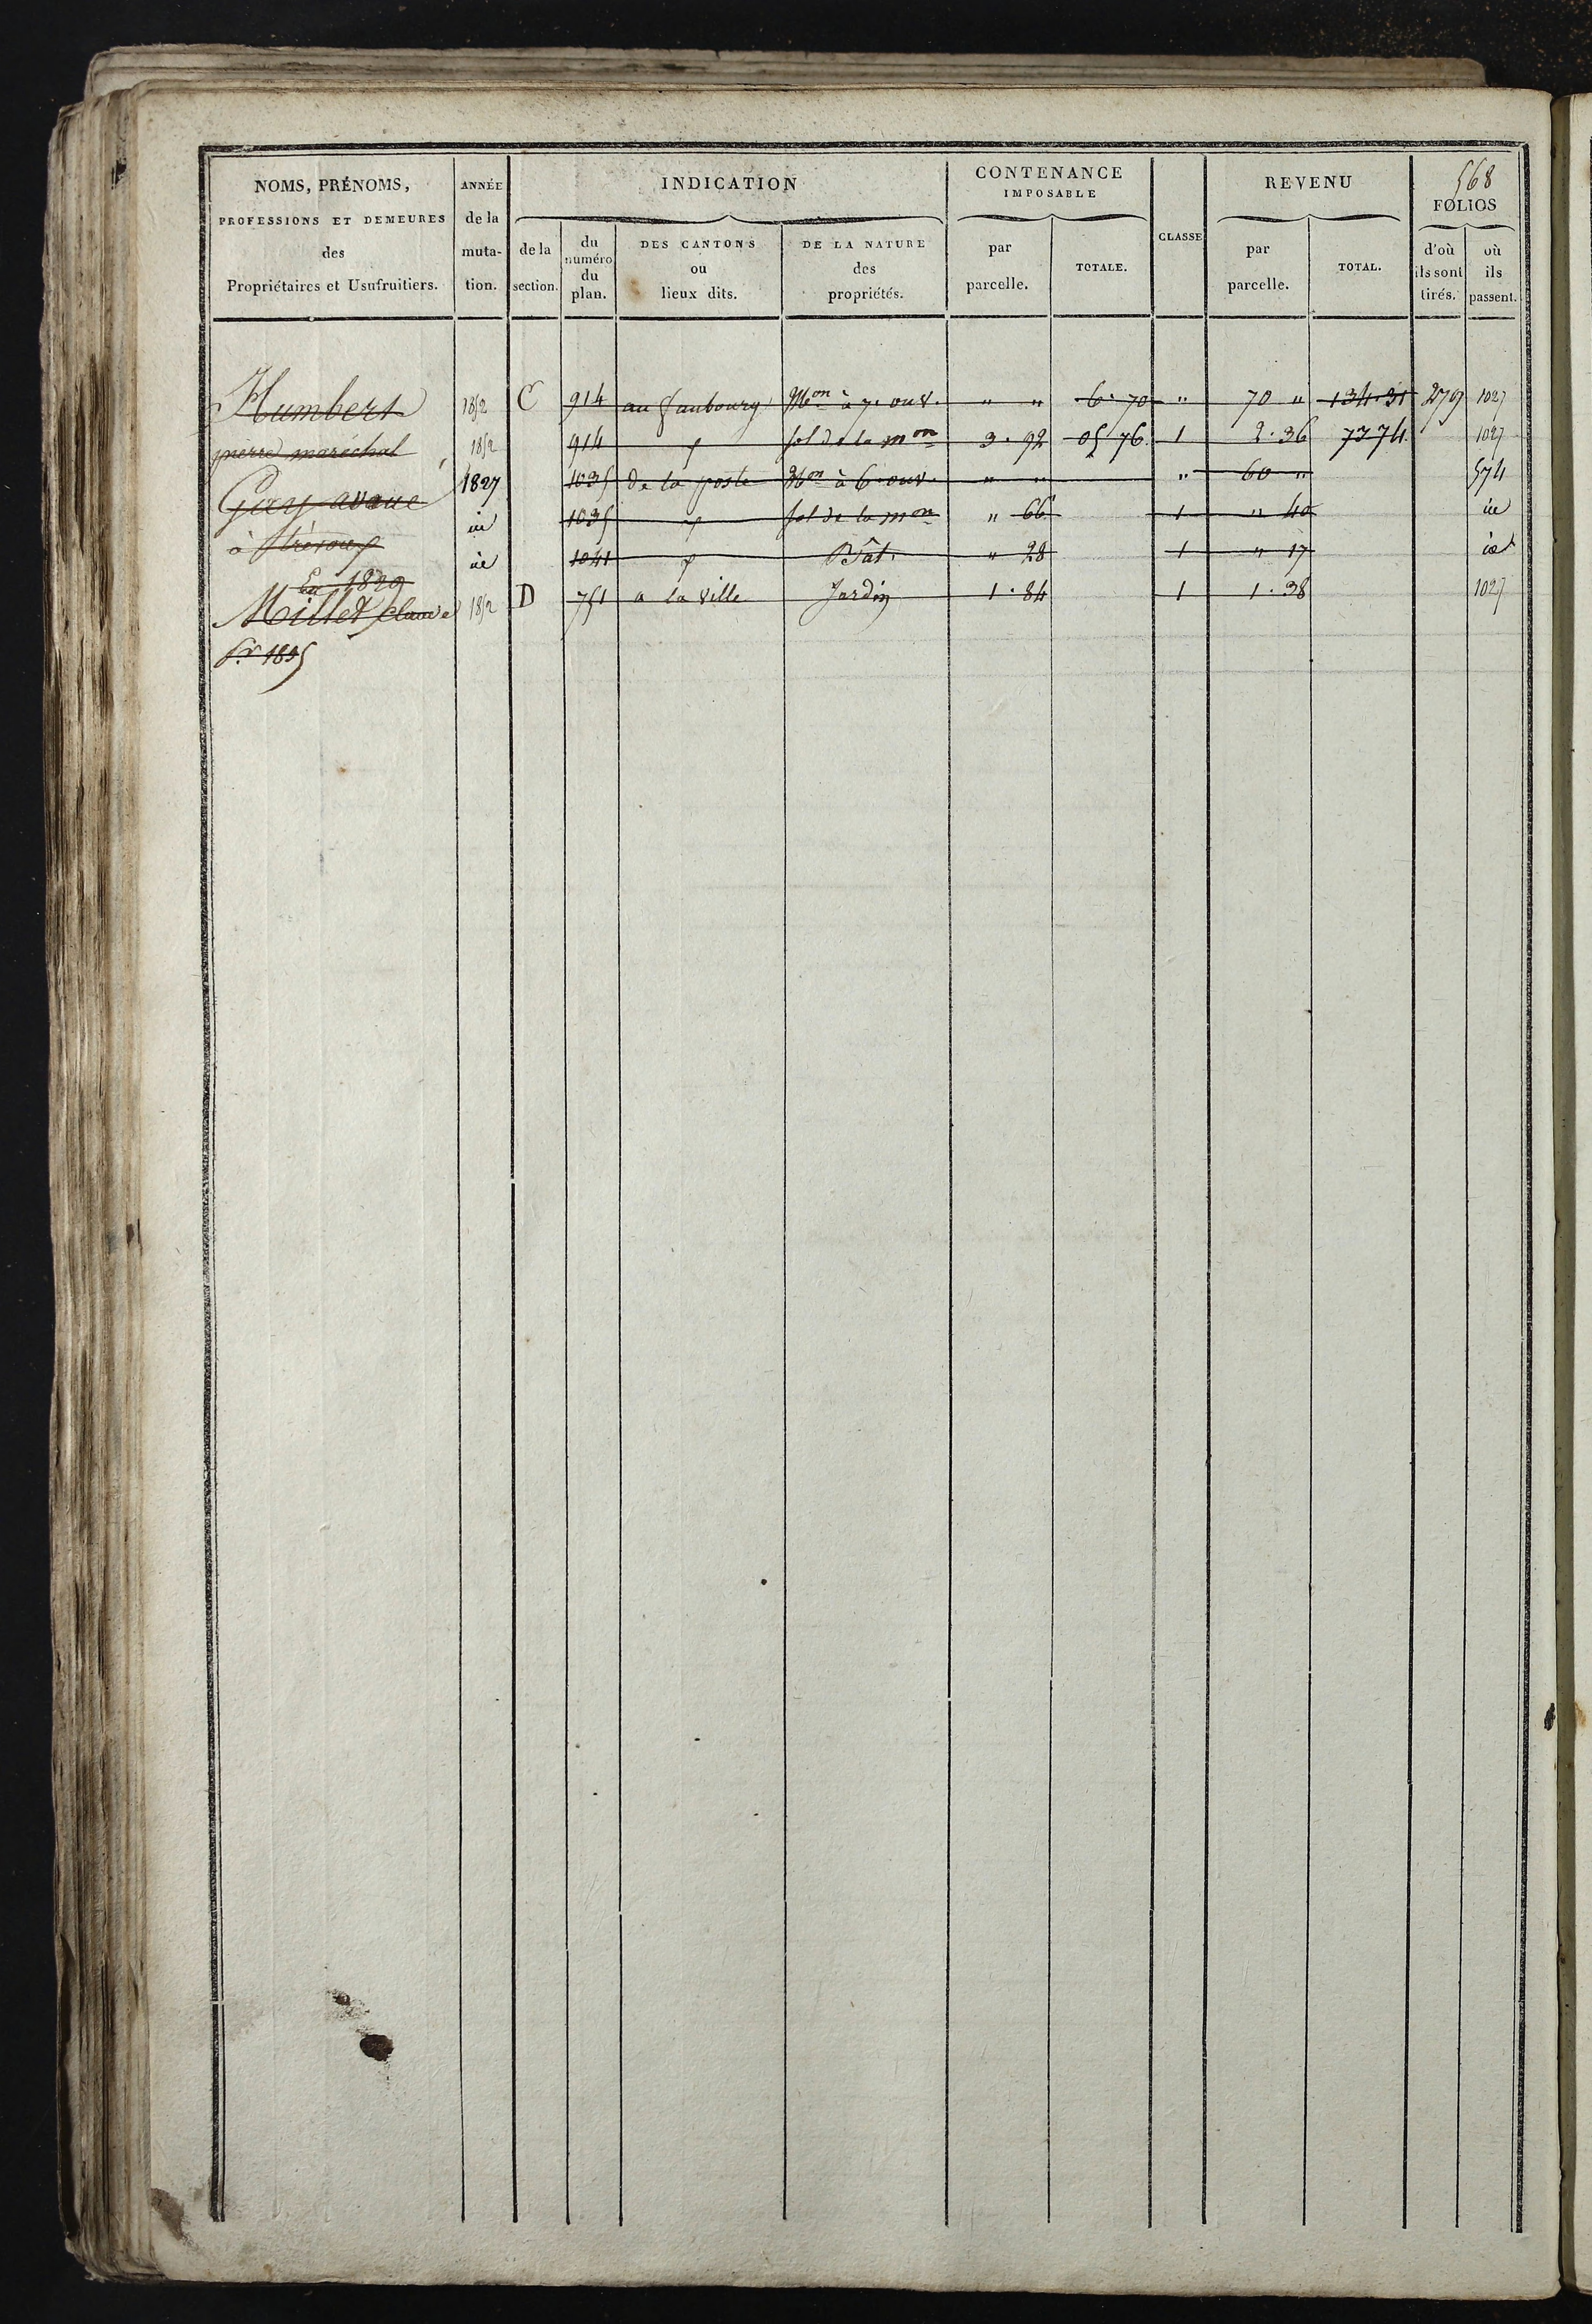 568
NOMS, PRÉNOMS, PROFESSIONS ET DEMEURES des Propriétaires et Usufruitiers.
ANNÉE de la muta- tion.
INDICATION
de la section.
du numéro du plan.
DES CANTONS ou lieux dits.
DE LA NATURE des propriétés.
CONTENANCE IMPOSABLE
par parcelle.
TOTALE.
CLASSE
REVENU
par parcelle.
TOTAL.
FOLIOS
d'où ils sont tirés.
où ils passent.
Humbert 1852 C 914 au faubourg Mon à 7. ouv. " " 6. 70 " 70 " 134. 31 279 1027
pierre maréchal 1852 914 sol de la mon 3. 92 05 76 1 2. 36 73 74 1027
Gary 1827 1035 de la poste Mon à 6. ouv. " " " 60 " 574
à 1035 sol de la mon " 66 1 " 40
1041 Bât. " 28 1 " 17
En 1829
Millet Claude 1852 D 751 a la ville Jardin 1. 84 1 1. 38 1027
1835